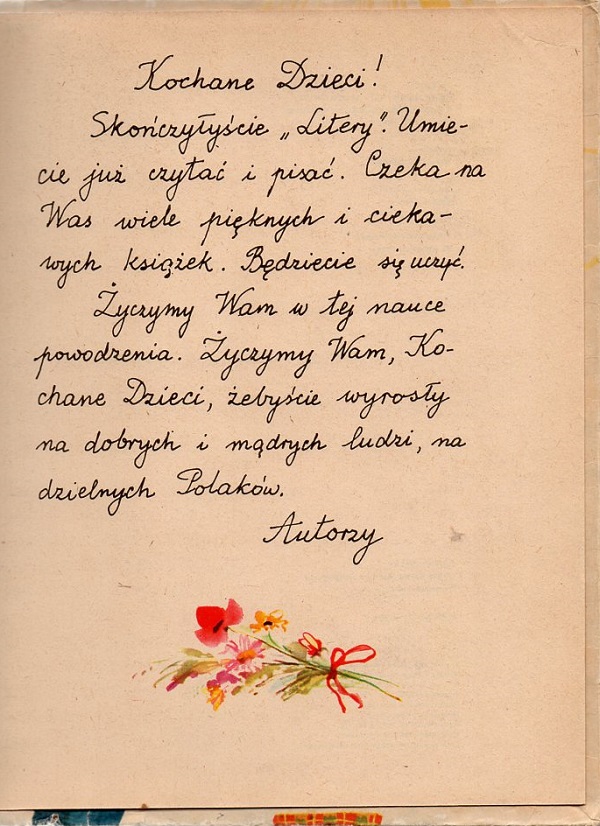 Kochane Dzieci!
Skończyłyście „Litery”. Umie-
cie już czytać i pisać. Czeka na
Was wiele pięknych i cieka-
wych książek. Będziecie się uczyć.
Życzymy Wam w tej nauce
powodzenia. Życzymy Wam, Ko-
chane Dzieci, żebyście wyrosły
na dobrych i mądrych ludzi, na
dzielnych Polaków.
Autorzy